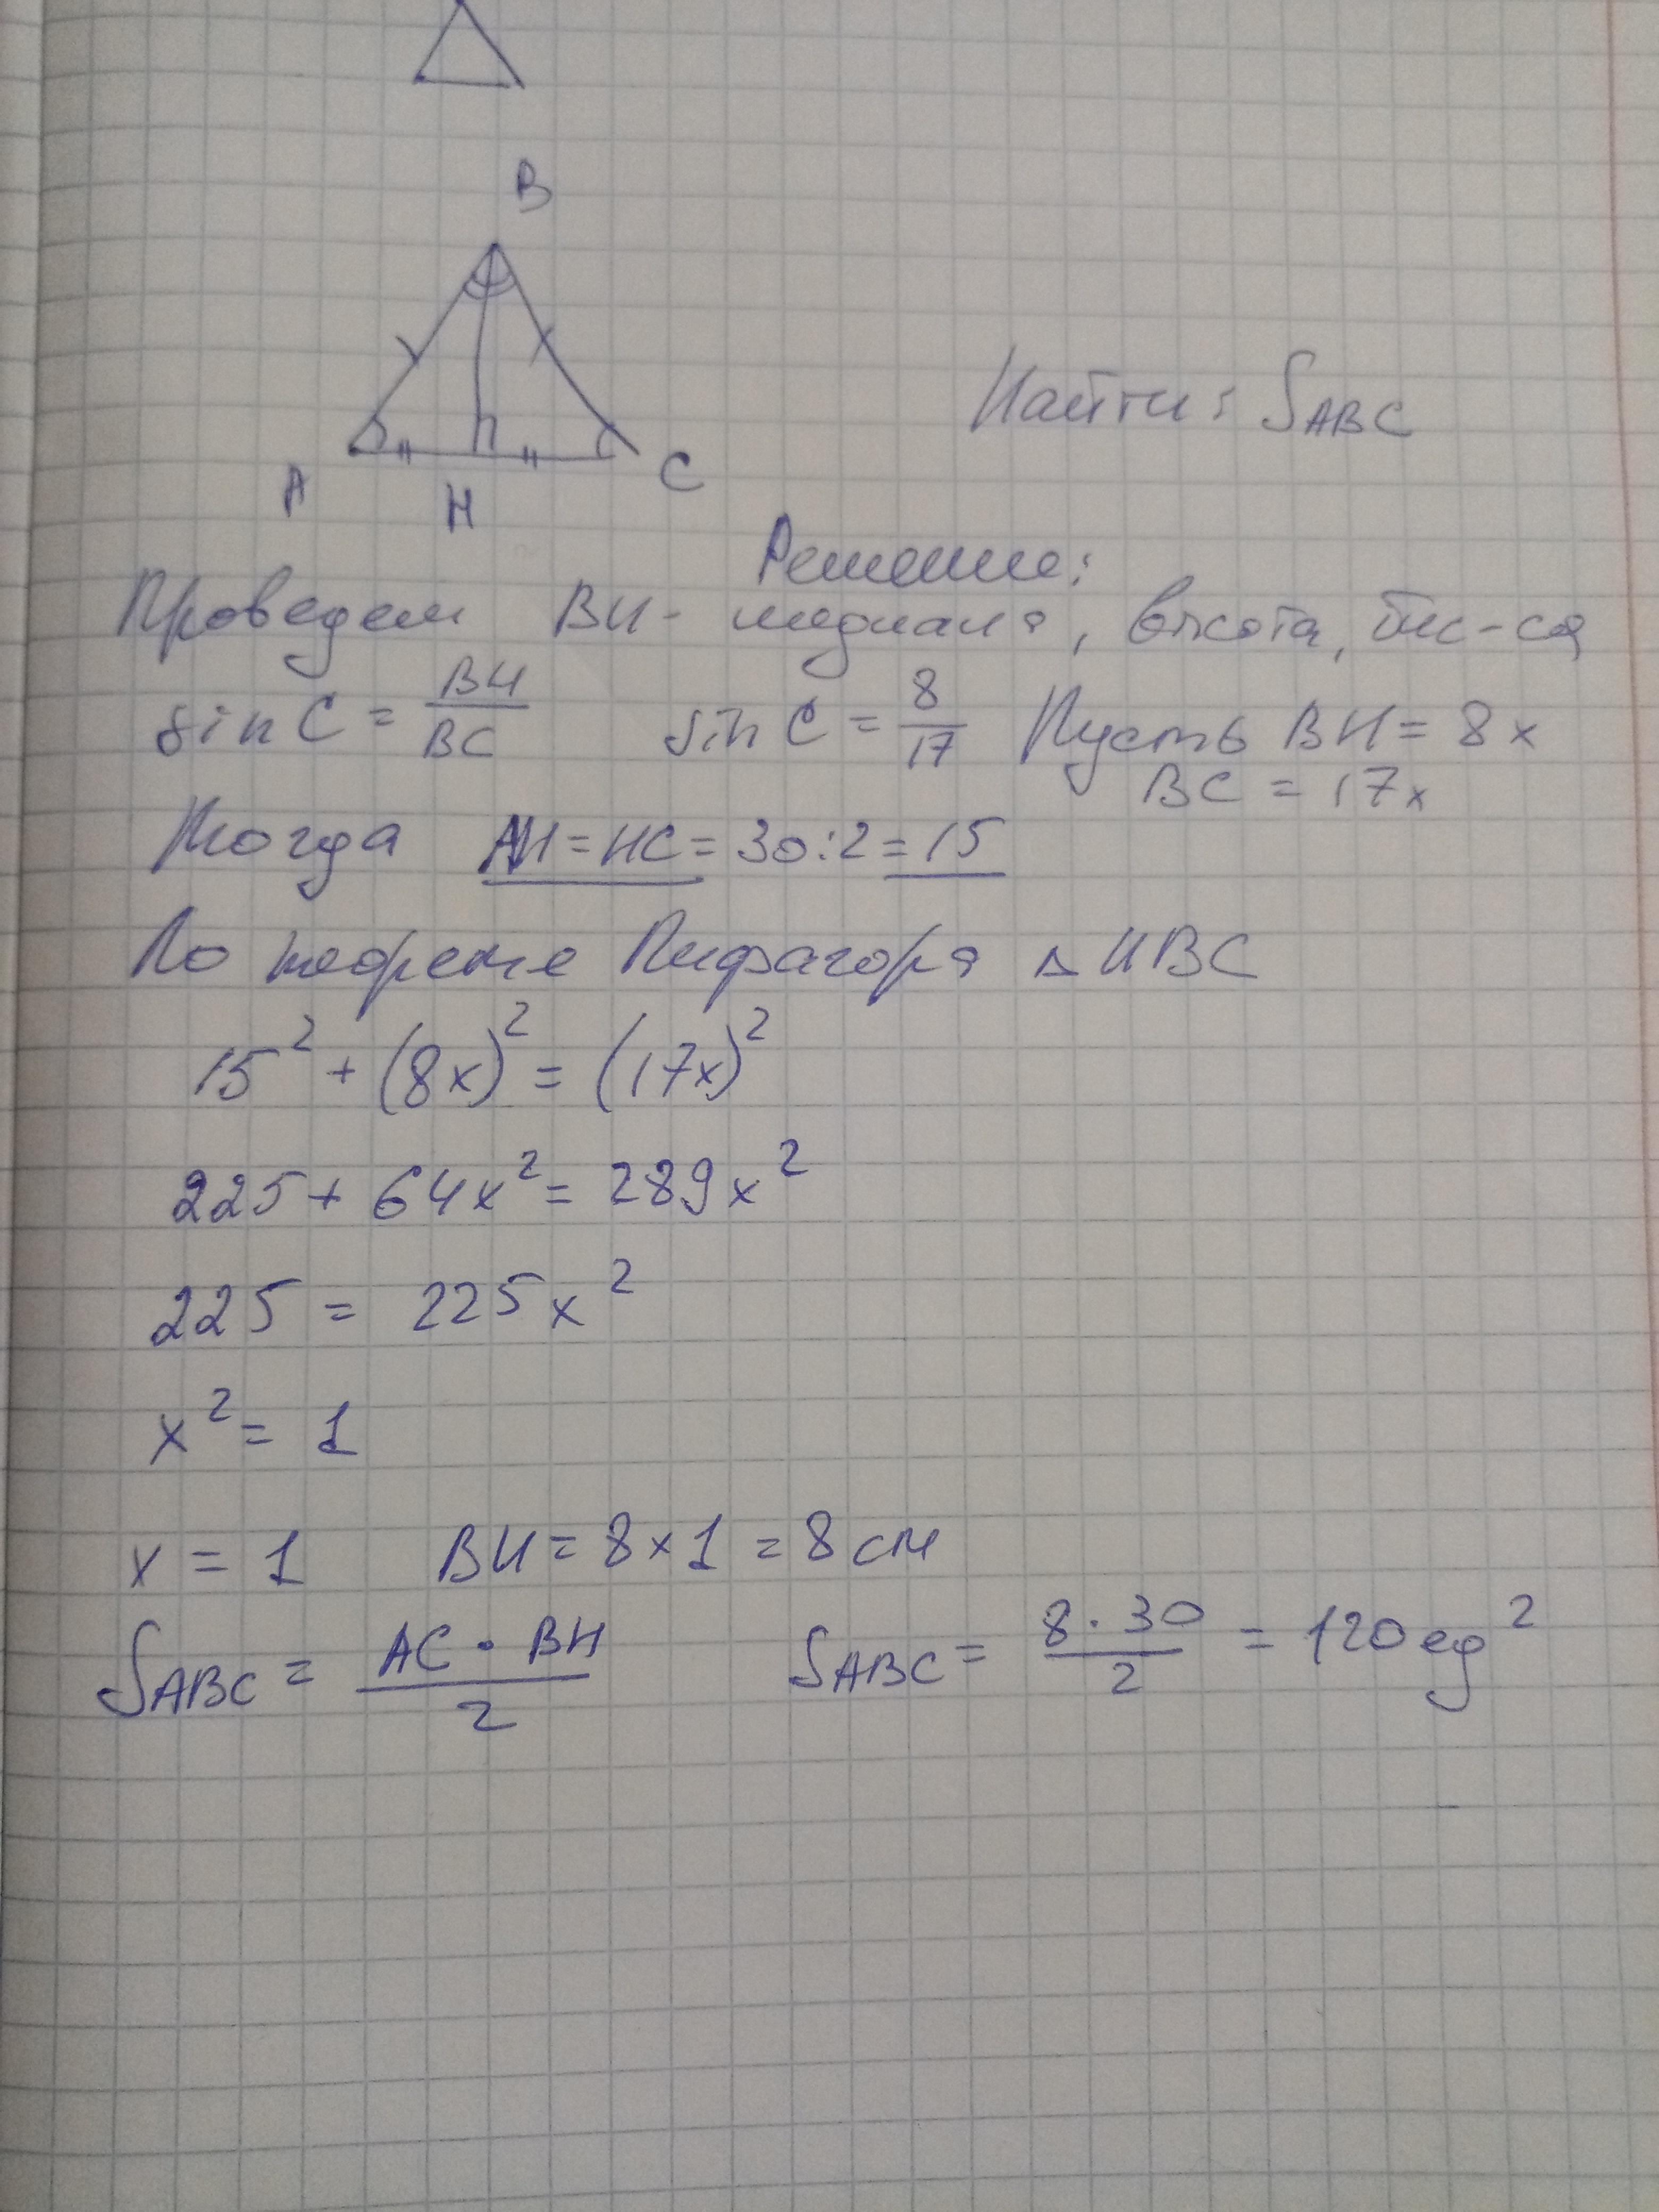 B
A H C
Найти: SABC
Решение:
Проведем BH - медиана, высота, бис-са
sin C = BH/BC sin C = 8/17 Пусть BH = 8x
BC = 17x
Тогда AH = HC = 30:2 = 15
По теореме Пифагора △HBC
15² + (8x)² = (17x)²
225 + 64x² = 289x²
225 = 225x²
x² = 1
x = 1 BH = 8×1 = 8 см
SABC = AC · BH/2 SABC = 8 · 30/2 = 120 ед²